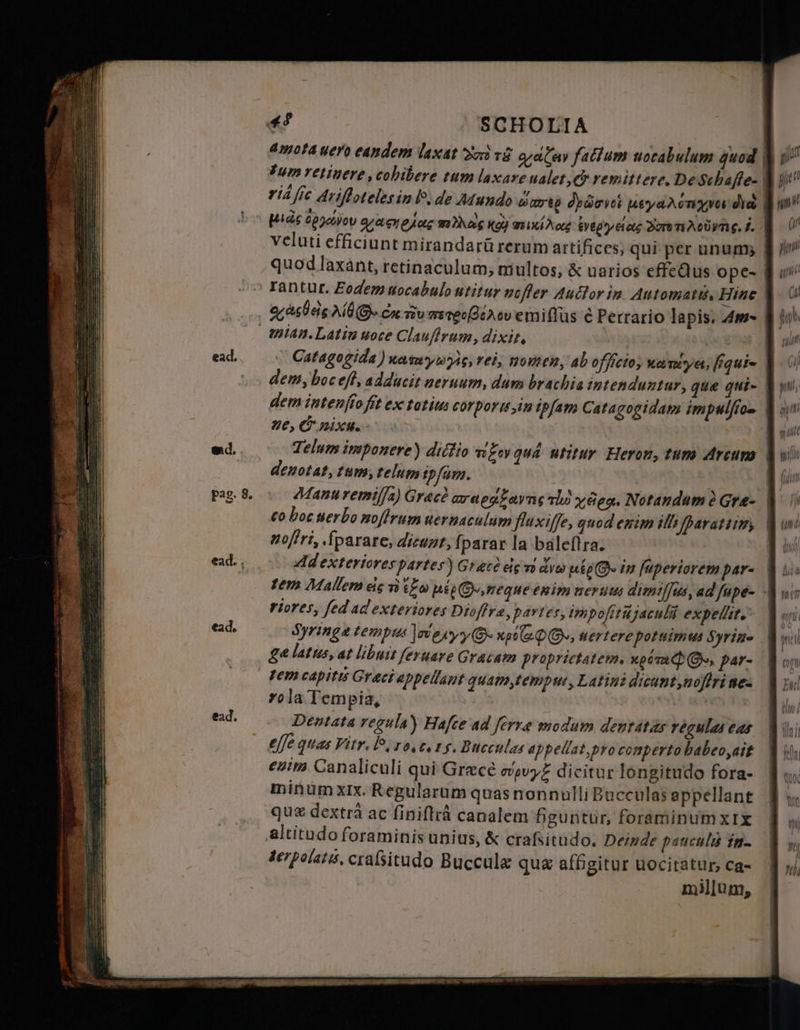 48 SCHOLIA
amota uero eandem laxat ἀπὸ τῦ σχάζειν factum uocabulum quod
tum retinere, cohibere tum laxare ualet, & remittere. De Schaste-
riâ sic Aristoteles in l°. de Mundo ὥσπερ δρῶσιν οἱ μεγαλότεχνοι διὰ
μιᾶς ὀργάνου σχαστηρίας πολλὰς καὶ ποικίλας ἐνεργείας ἀποτελοῦντες. i.
veluti efficiunt mirandarū rerum artifices, qui per unum,
quod laxant, retinaculum, multos, & uarios effectus ope-
rantur. Eodem uocabulo utitur noster Auctor in Automatis. Hinc
σχασθεὶς λίθος ἐκ τῶν πετροβόλου emissus è Petrario lapis. Am-
mian. Latin uoce Claustrum, dixit.
ead. Catagogida) καταγωγίς, rei, nomen, ab officio, κατάγει, siqui-
dem, hoc est, adducit neruum, dum brachia intenduntur, quæ qui-
dem intensio fit ex totius corporis, in ipsam Catagogidam impulsio-
ne, & nixu.
ead. Telum imponere) dictio τόξον quâ utitur Heron, tum Arcum
denotat, tum, telum ipsum.
pag. 8. Manu remissa) Græcè παρασπάσαντες τὴν χεῖρα. Notandum è Græ-
co hoc uerbo nostrum uernaculum fluxisse, quod enim illi sparattin,
nostri, sparare, dicunt, sparar la balestra.
ead. Ad exteriores partes) Græcè εἰς τὸ ἄνω μέρος in superiorem par-
tem Mallem εἰς τὸ ἔξω μέρος, neque enim neruus dimissus, ad supe-
riores, sed ad exteriores Diostræ, partes, impositū jaculū expellit.
ead. Syringæ tempus] σύριγγος κρόταφος, uertere potuimus Syrin-
gæ latus, at libuit seruare Græcam proprietatem. κρόταφος, par-
tem capitis Græci appellant quam, tempus, Latini dicunt, nostri ue-
rola Tempia,
ead. Dentata regula) Hasce ad serræ modum dentatas regulas eas
esse quas Vitr. l°. 10. c. 15. Bucculas appellat, pro comperto habeo, ait
enim Canaliculi qui Græcè σύριγξ dicitur longitudo fora-
minum XIX. Regularum quas nonnulli Bucculas appellant
quæ dextrâ ac sinistrâ canalem figuntur, foraminum XIX
altitudo foraminis unius, & crassitudo. Deinde pauculis in-
terpolatis, crassitudo Bucculæ quæ affigitur uocitatur, ca-
millum,